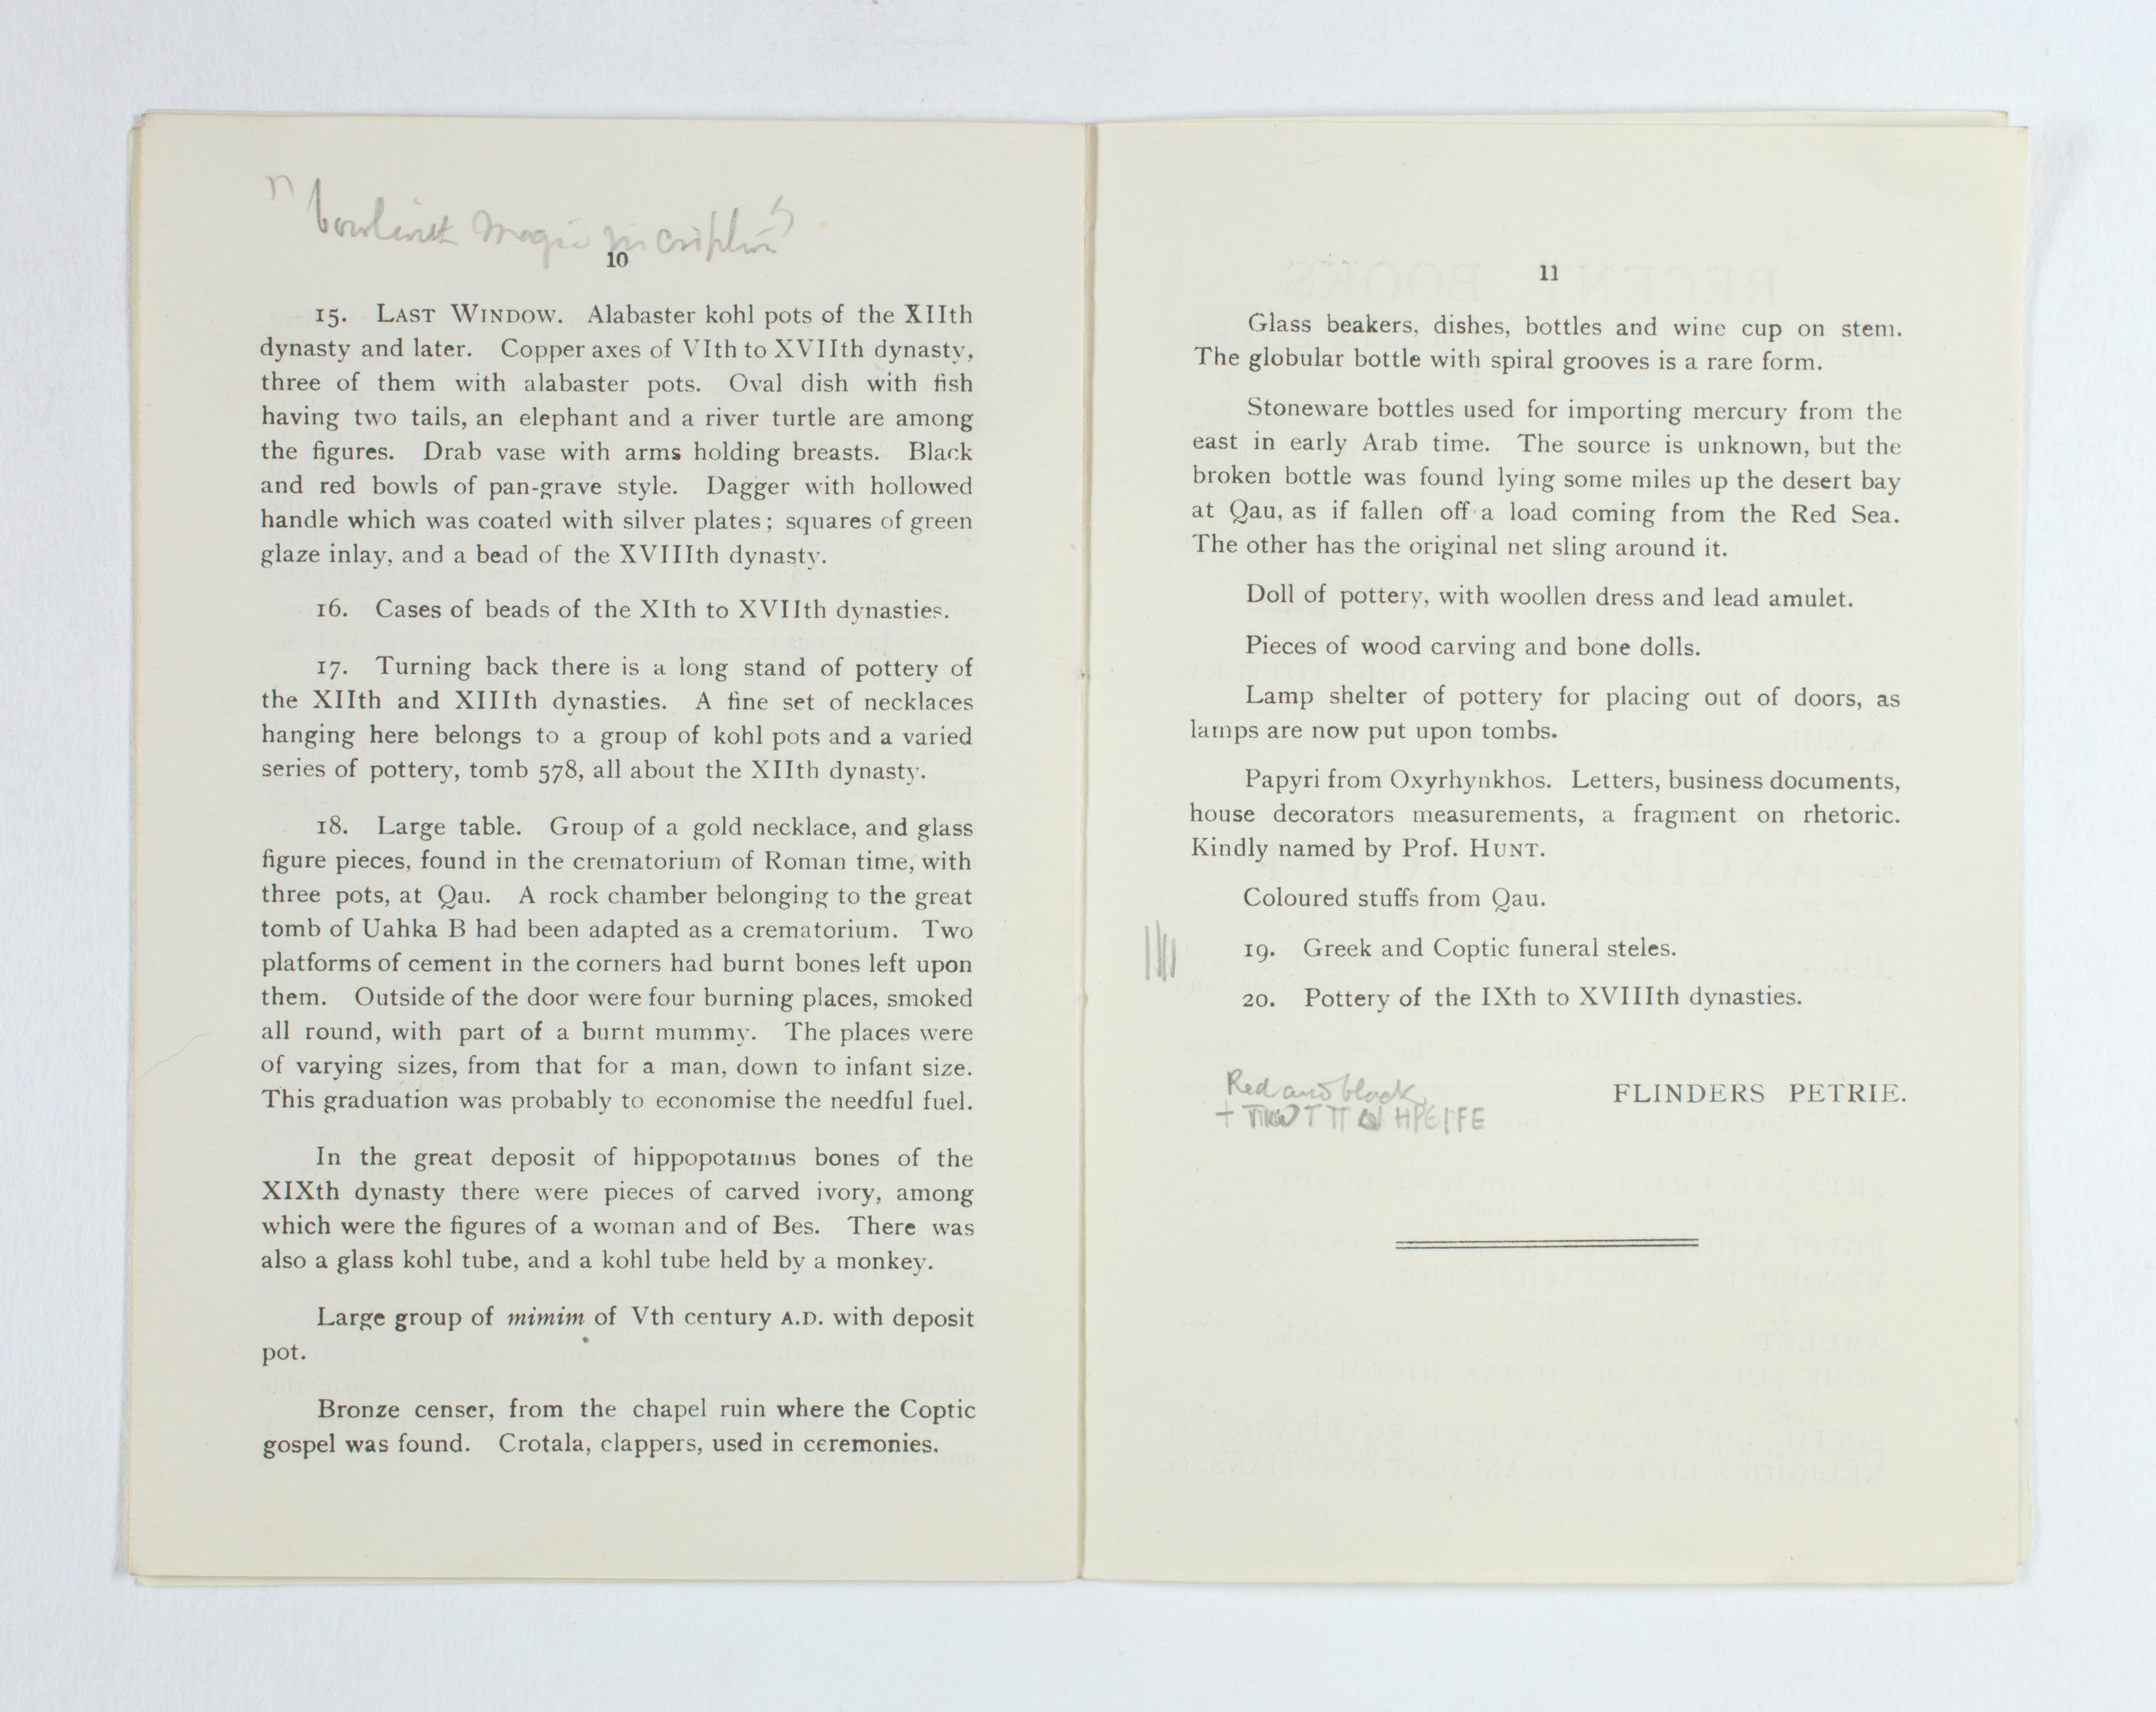 magic inscription
10
15. LAST WINDOW. Alabaster kohl pots of the XIIth
dynasty and later. Copper axes of VIth to XVIIth dynasty,
three of them with alabaster pots. Oval dish with fish
having two tails, an elephant and a river turtle are among
the figures. Drab vase with arms holding breasts. Black
and red bowls of pan-grave style. Dagger with hollowed
handle which was coated with silver plates; squares of green
glaze inlay, and a bead of the XVIIIth dynasty.
16. Cases of beads of the XIth to XVIIth dynasties.
17. Turning back there is a long stand of pottery of
the XIIth and XIIIth dynasties. A fine set of necklaces
hanging here belongs to a group of kohl pots and a varied
series of pottery, tomb 578, all about the XIIth dynasty.
18. Large table. Group of a gold necklace, and glass
figure pieces, found in the crematorium of Roman time, with
three pots, at Qau. A rock chamber belonging to the great
tomb of Uahka B had been adapted as a crematorium. Two
platforms of cement in the corners had burnt bones left upon
them. Outside of the door were four burning places, smoked
all round, with part of a burnt mummy. The places were
of varying sizes, from that for a man, down to infant size.
This graduation was probably to economise the needful fuel.
In the great deposit of hippopotamus bones of the
XIXth dynasty there were pieces of carved ivory, among
which were the figures of a woman and of Bes. There was
also a glass kohl tube, and a kohl tube held by a monkey.
Large group of mimim of Vth century A.D. with deposit
pot.
Bronze censer, from the chapel ruin where the Coptic
gospel was found. Crotala, clappers, used in ceremonies.
11
Glass beakers, dishes, bottles and wine cup on stem.
The globular bottle with spiral grooves is a rare form.
Stoneware bottles used for importing mercury from the
east in early Arab time. The source is unknown, but the
broken bottle was found lying some miles up the desert bay
at Qau, as if fallen off a load coming from the Red Sea.
The other has the original net sling around it.
Doll of pottery, with woollen dress and lead amulet.
Pieces of wood carving and bone dolls.
Lamp shelter of pottery for placing out of doors, as
lamps are now put upon tombs.
Papyri from Oxyrhynkhos. Letters, business documents,
house decorators measurements, a fragment on rhetoric.
Kindly named by Prof. HUNT.
Coloured stuffs from Qau.
19. Greek and Coptic funeral steles.
20. Pottery of the IXth to XVIIIth dynasties.
Red and black
FLINDERS PETRIE.